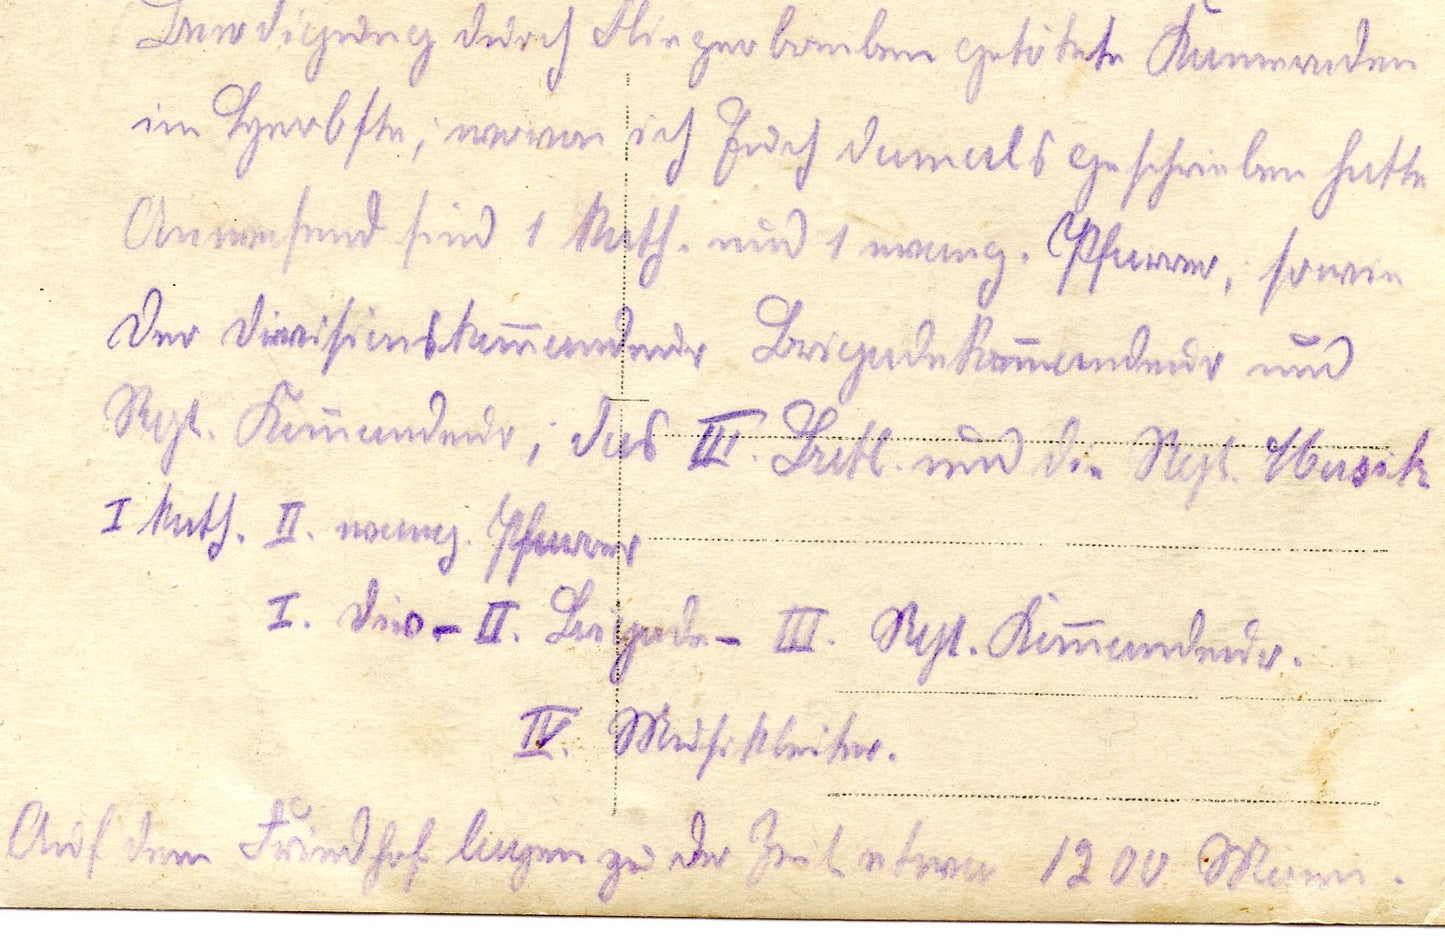 Beerdigung durch Fliegerbomben getötete Kameraden
im Herbste, wovon ich Euch damals geschrieben hatte
Anwesend sind 1 kath. und 1 evang. Pfarrer, sowie
der Divisionskom̅andeur Brigadekom̅andeur und
Rgt. Kom̅andeur, das III. Batl. und die Rgt. Musik
I kath. II. evang. Pfarrer
I. Div.- II. Brigade- III. Rgt. Kom̅andeur.
IV. Musikleiter.
Auf dem Friedhof liegen zu der Zeit etwa 1200 Mann.